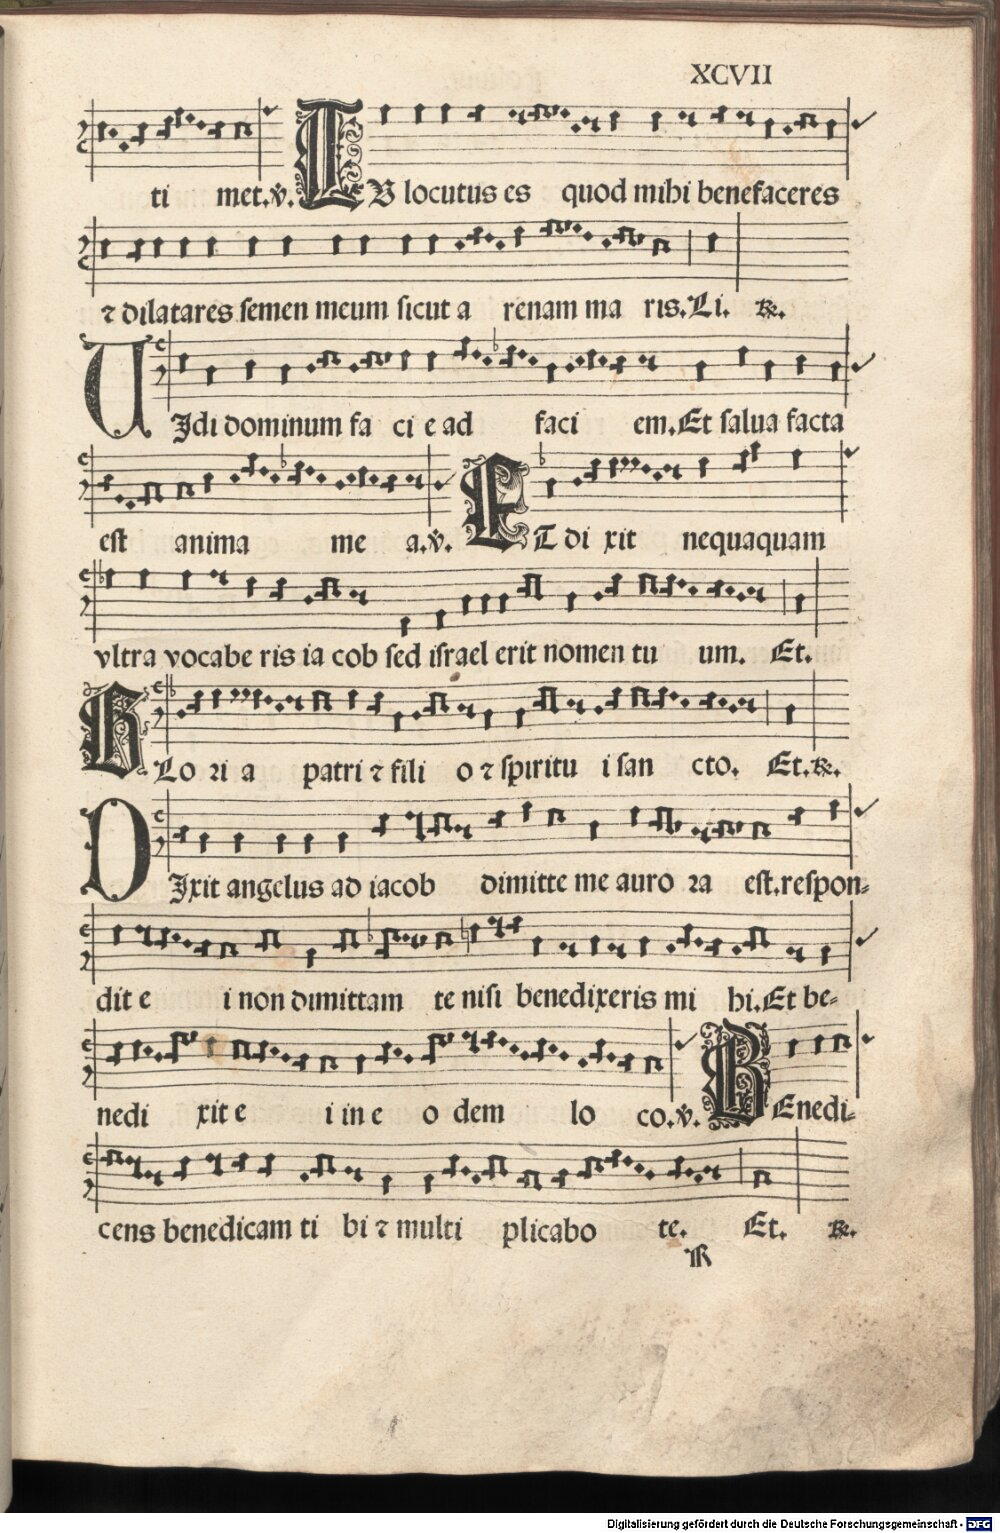 XCVII
ti met.v̄. TU locutus es quod mihi benefaceres
⁊ dilatares ſemen meum ſicut a renam ma ris.Li. ℟.
VIdi dominum fa ci e ad faci em.Et ſalua facta
eſt anima me a.v̄. ET di xit nequaquam
vltra vocabe ris ia cob ſed iſrael erit nomen tu um. Et.
GLo ꝛi a patri ⁊ fili o ⁊ ſpiritu i ſan cto. Et.℟.
DIxit angelus ad iacob dimitte me auro ꝛa eſt.reſpon⸗
dit e i non dimittam te niſi benedixeris mi hi.Et be⸗
nedi xit e i in e o dem lo co.v̄. BEnedi⸗
cens benedicam ti bi ⁊ multi plicabo te. Et. ℟.
R
Digitalisierung gefördert durch die Deutsche Forschungsgemeinschaft - DFG